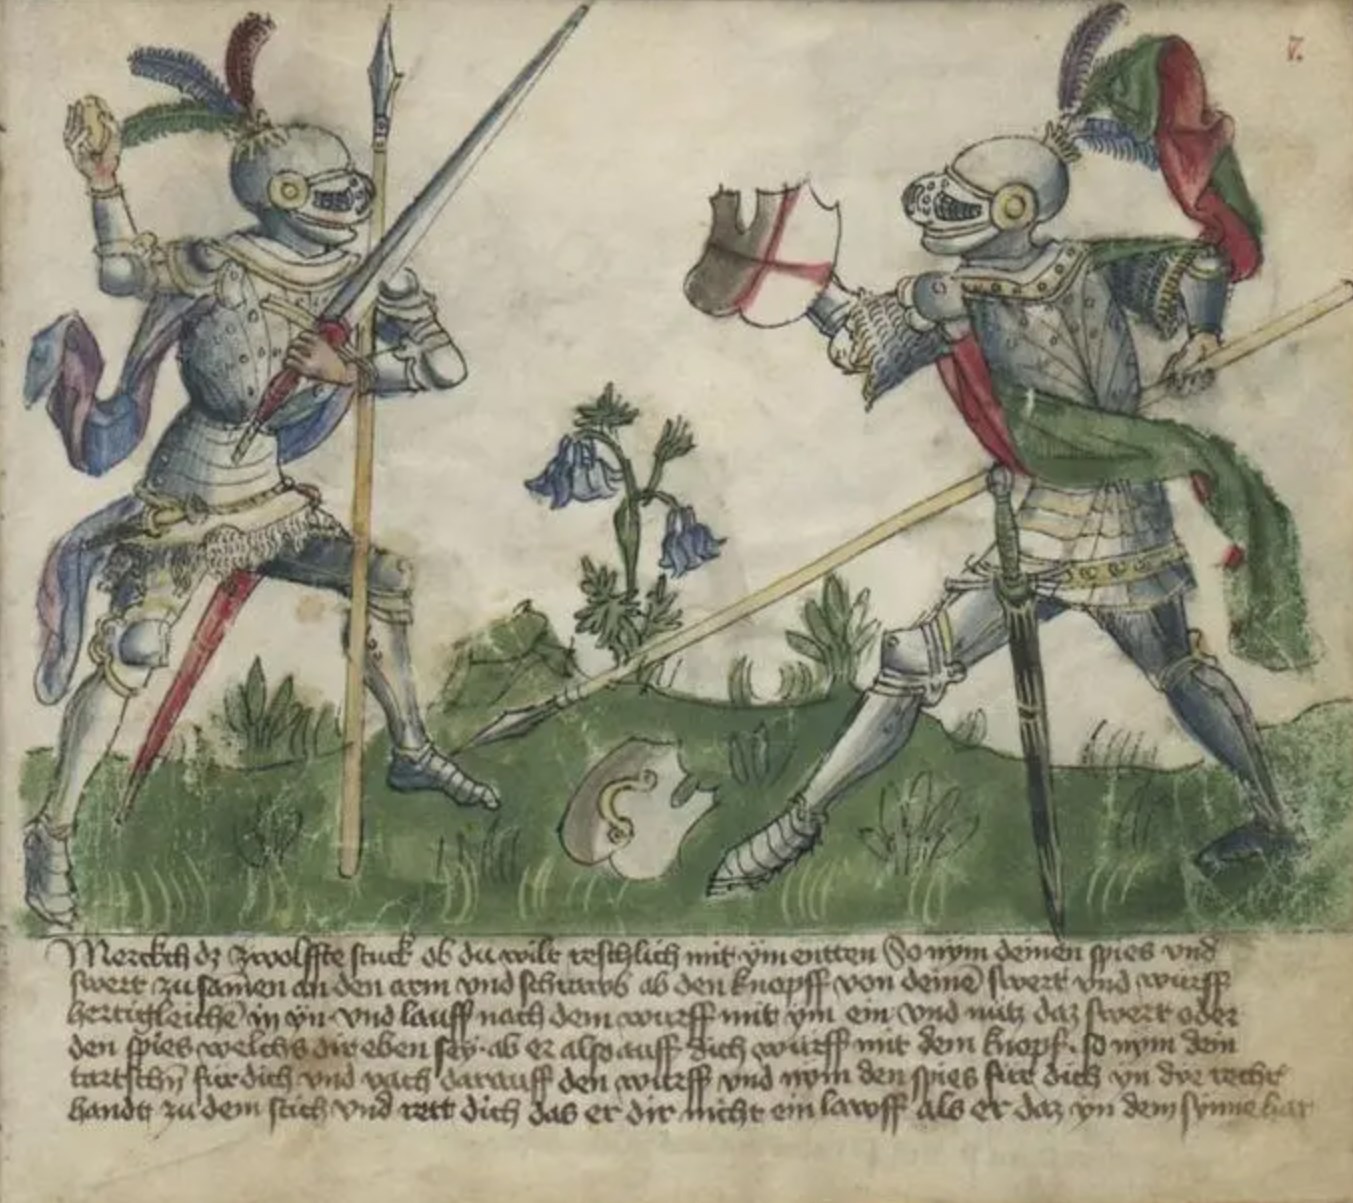 V.
Merckch dz zwolffte stuck ob du wilt reschlich mit ym entten So nym deinen spies vnd
swert zu samen an den arm vnd schraub ab den knopff von deinē swert vnd wurff
hertigleichē in yn vnd lauff nach dem wurff mit ym ein vnd nütz daz swert oder
den spies welchs dir eben sey · ob er also auff dich wurff mit dem knopf · so nym dein
tartschñ fur dich vnd vach darauff den wurff vnd nym den spies fur dich yn dye recht
handt zu dem stich vnd rett dich das er dir nicht ein lawff als er daz yn dem synne hat